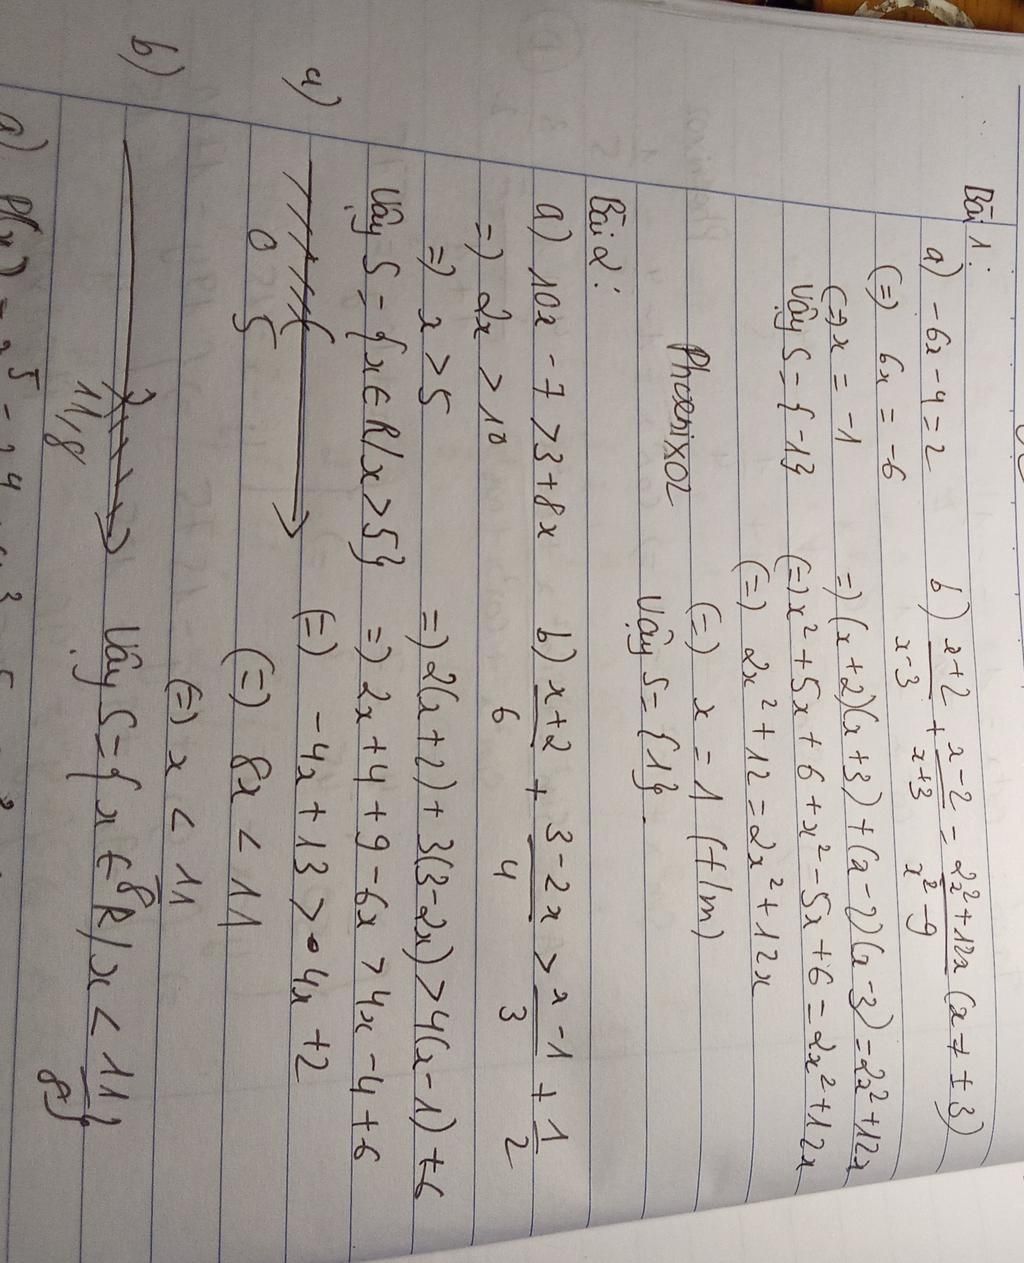 Bài 1:
a) -6x - 4 = 2
(=) 6x = -6
(=) x = -1
Vậy S = {-1}
b) x+2/x-3 + x-2/x+3 = 2x²+12x/x²-9 (x ≠ ±3)
=) (x+2)(x+3) + (x-2)(x-3) = 2x²+12x
(=) x²+5x+6+x²-5x+6 = 2x²+12x
(=) 2x²+12 = 2x²+12x
(=) x = 1 (t/m)
Vậy S = {1}.
Bài 2:
a) 10x - 7 > 3 + 8x
=) 2x > 10
=) x > 5
Vậy S = {x ∈ R/x > 5}
b) x+2/6 + 3-2x/4 > x-1/3 + 1/2
=) 2(x+2) + 3(3-2x) > 4(x-1) + 6
=) 2x+4+9-6x > 4x-4+6
(=) -4x+13 > 4x+2
(=) 8x < 11
(=) x < 11/8
a)
0 5
b)
11/8
Vậy S = {x ∈ R/x < 11/8}